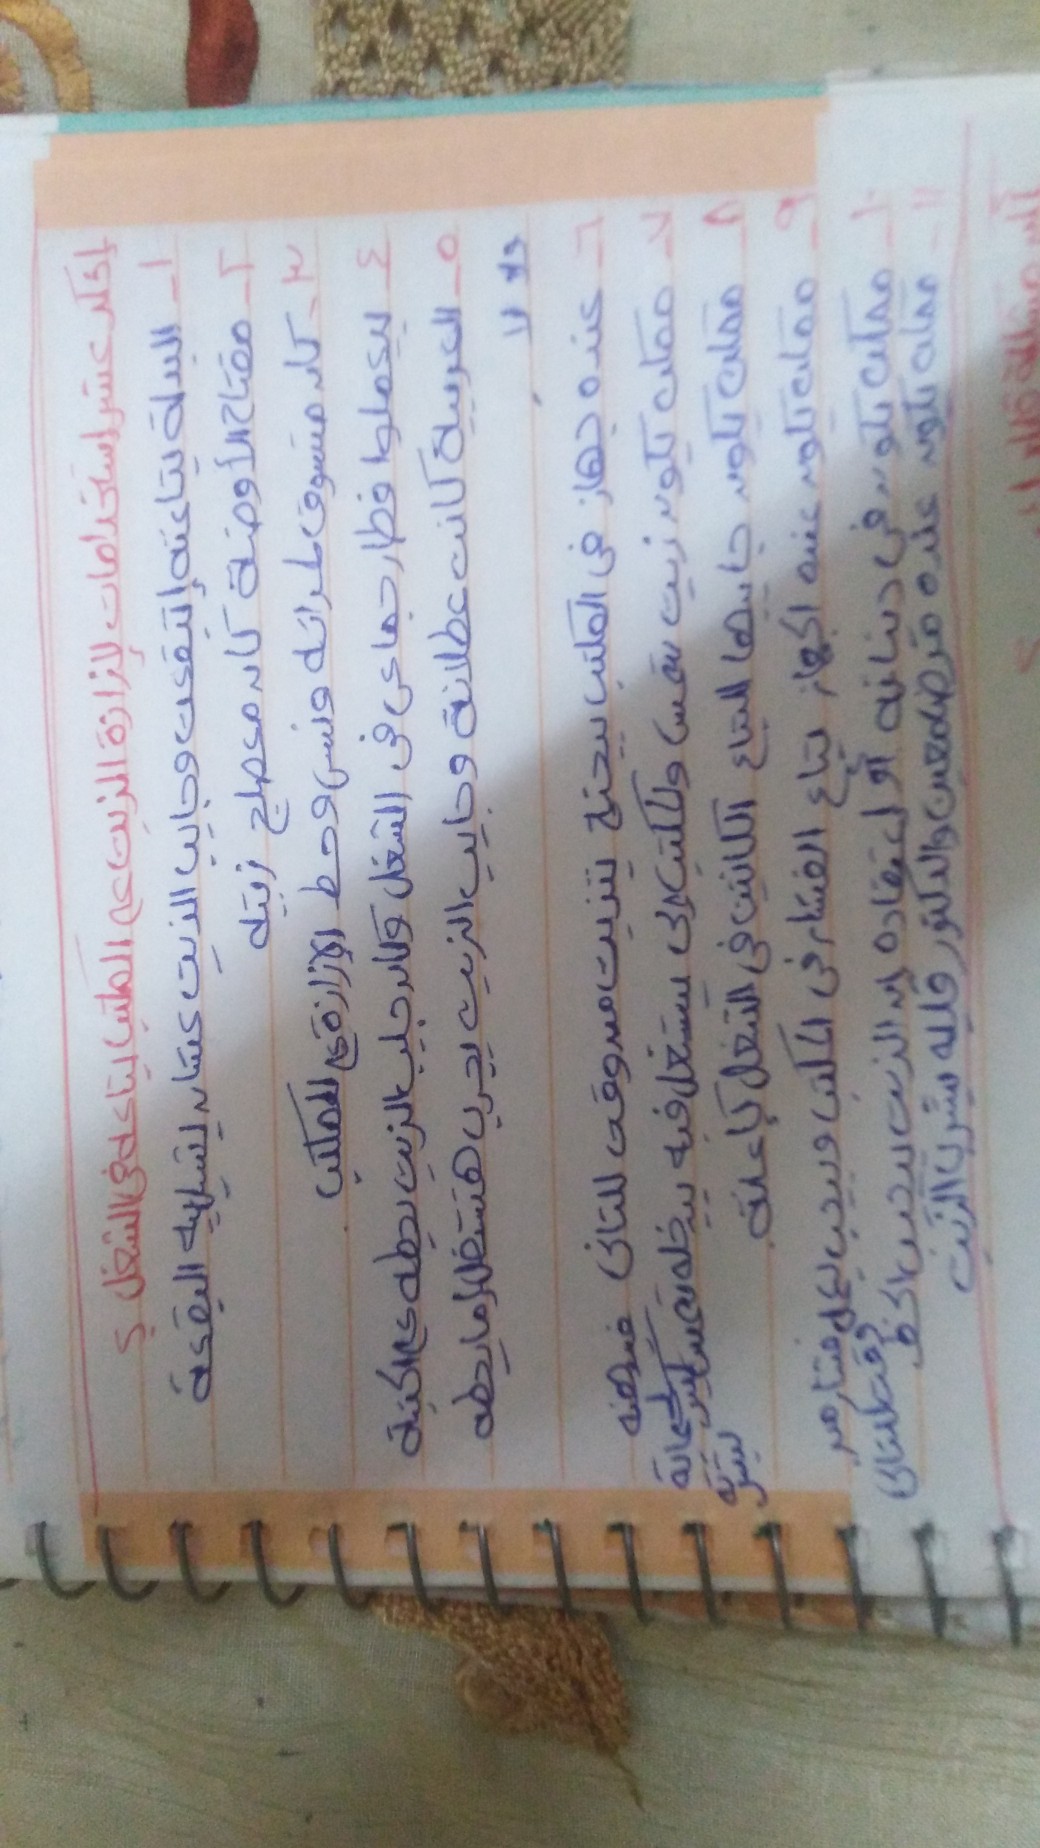 إذكر عشر إستخدامات لإزازة الزيت على المكتب بتاعك فى الشغل ؟
١- البدلة بتاعته إتبقعت وجايب الزيت عشان يشيل بيه البقعة
٢- مفتاح الأوضة كان معصلج زيته
٣- كان متسوق لمراته ونسى وحط الإزازة على المكتب .
٤- بيعملوا فطار جماعى فى الشغل وكان جايب الزيت يحطه على الجبنة
٥- العربية كانت عطلانة وجايب الزيت يجرب هتشتغل لما يحطه
ولا لا .
٦- عنده جهاز فى المكتب بيحتاج يتزيت من وقت للتانى
٧- ممكن يكون زيت شمس والمكتب إلى بيشتغل فيه بيدخله شمس لحماية
بشرته
٨- ممكن يكون جايبها لبتاع الكانتين فى الشغل كإعانة.
٩- ممكن يكون عنده الجهاز بتاع الفشار فى المكتب وبيحب يعمل فشار من
وقت للتانى
١٠- ممكن يكون فى ديانته أو إعتقاده إن الزيت بيجيب الحظ
١١- ممكن يكون عنده مرض معين والدكتور قايله يشرب الزيت